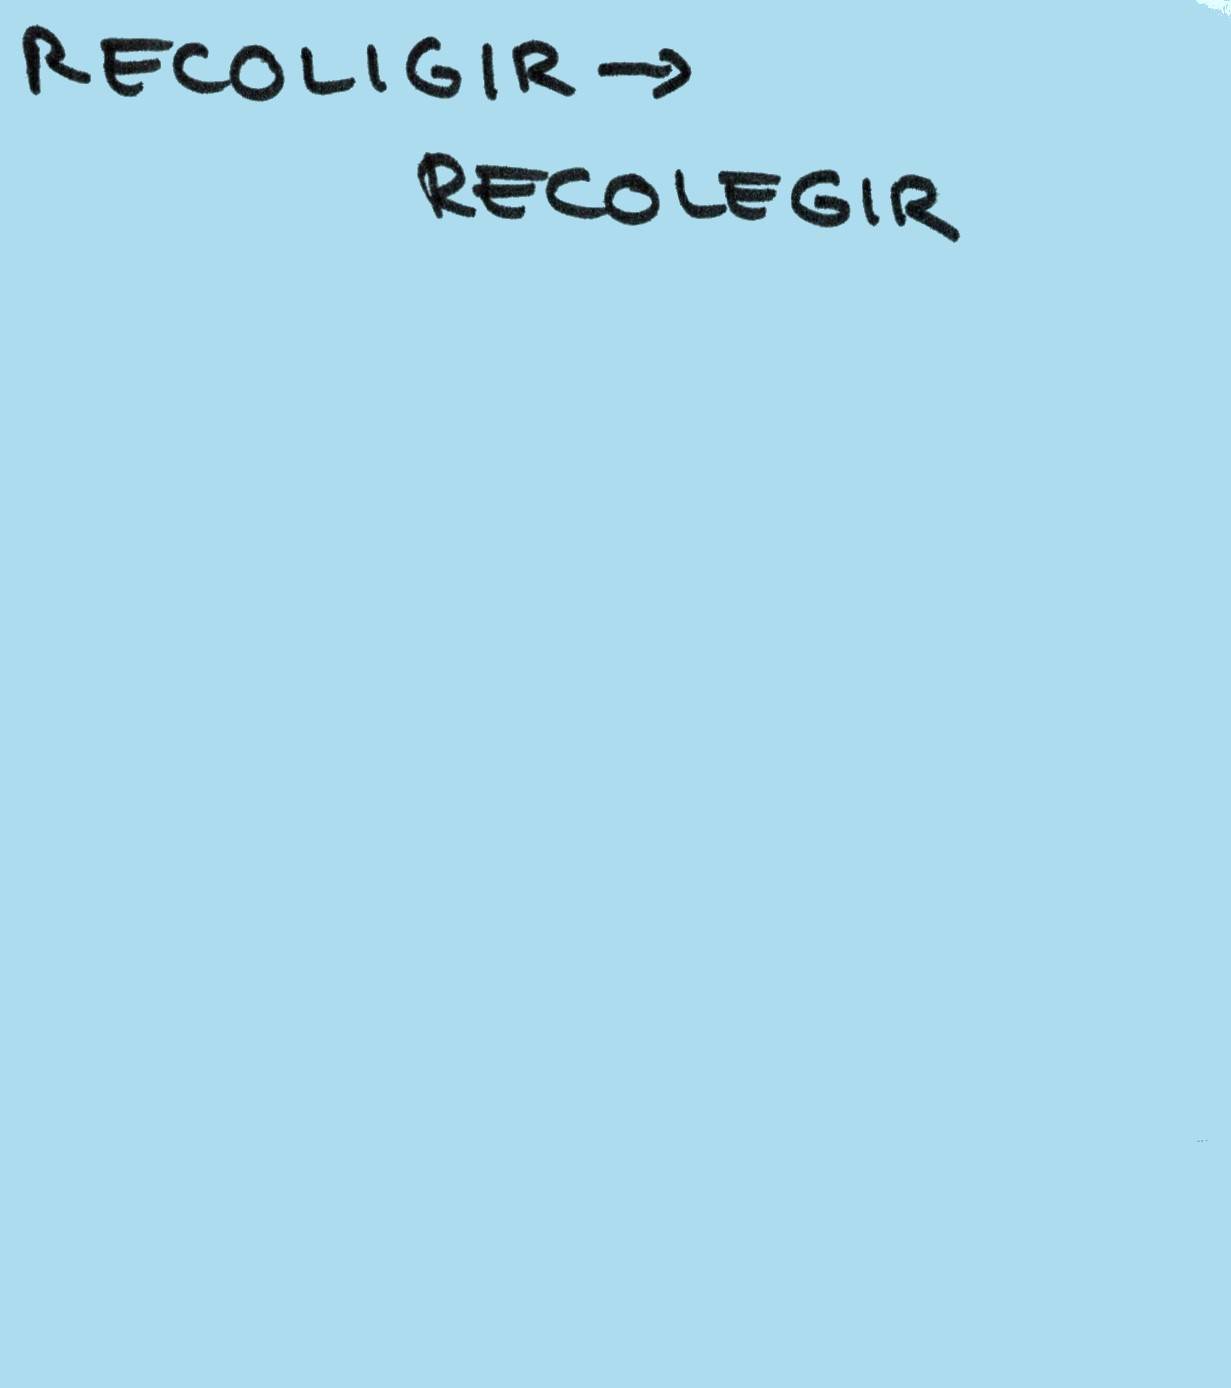 RECOLIGIR →
RECOLEGIR